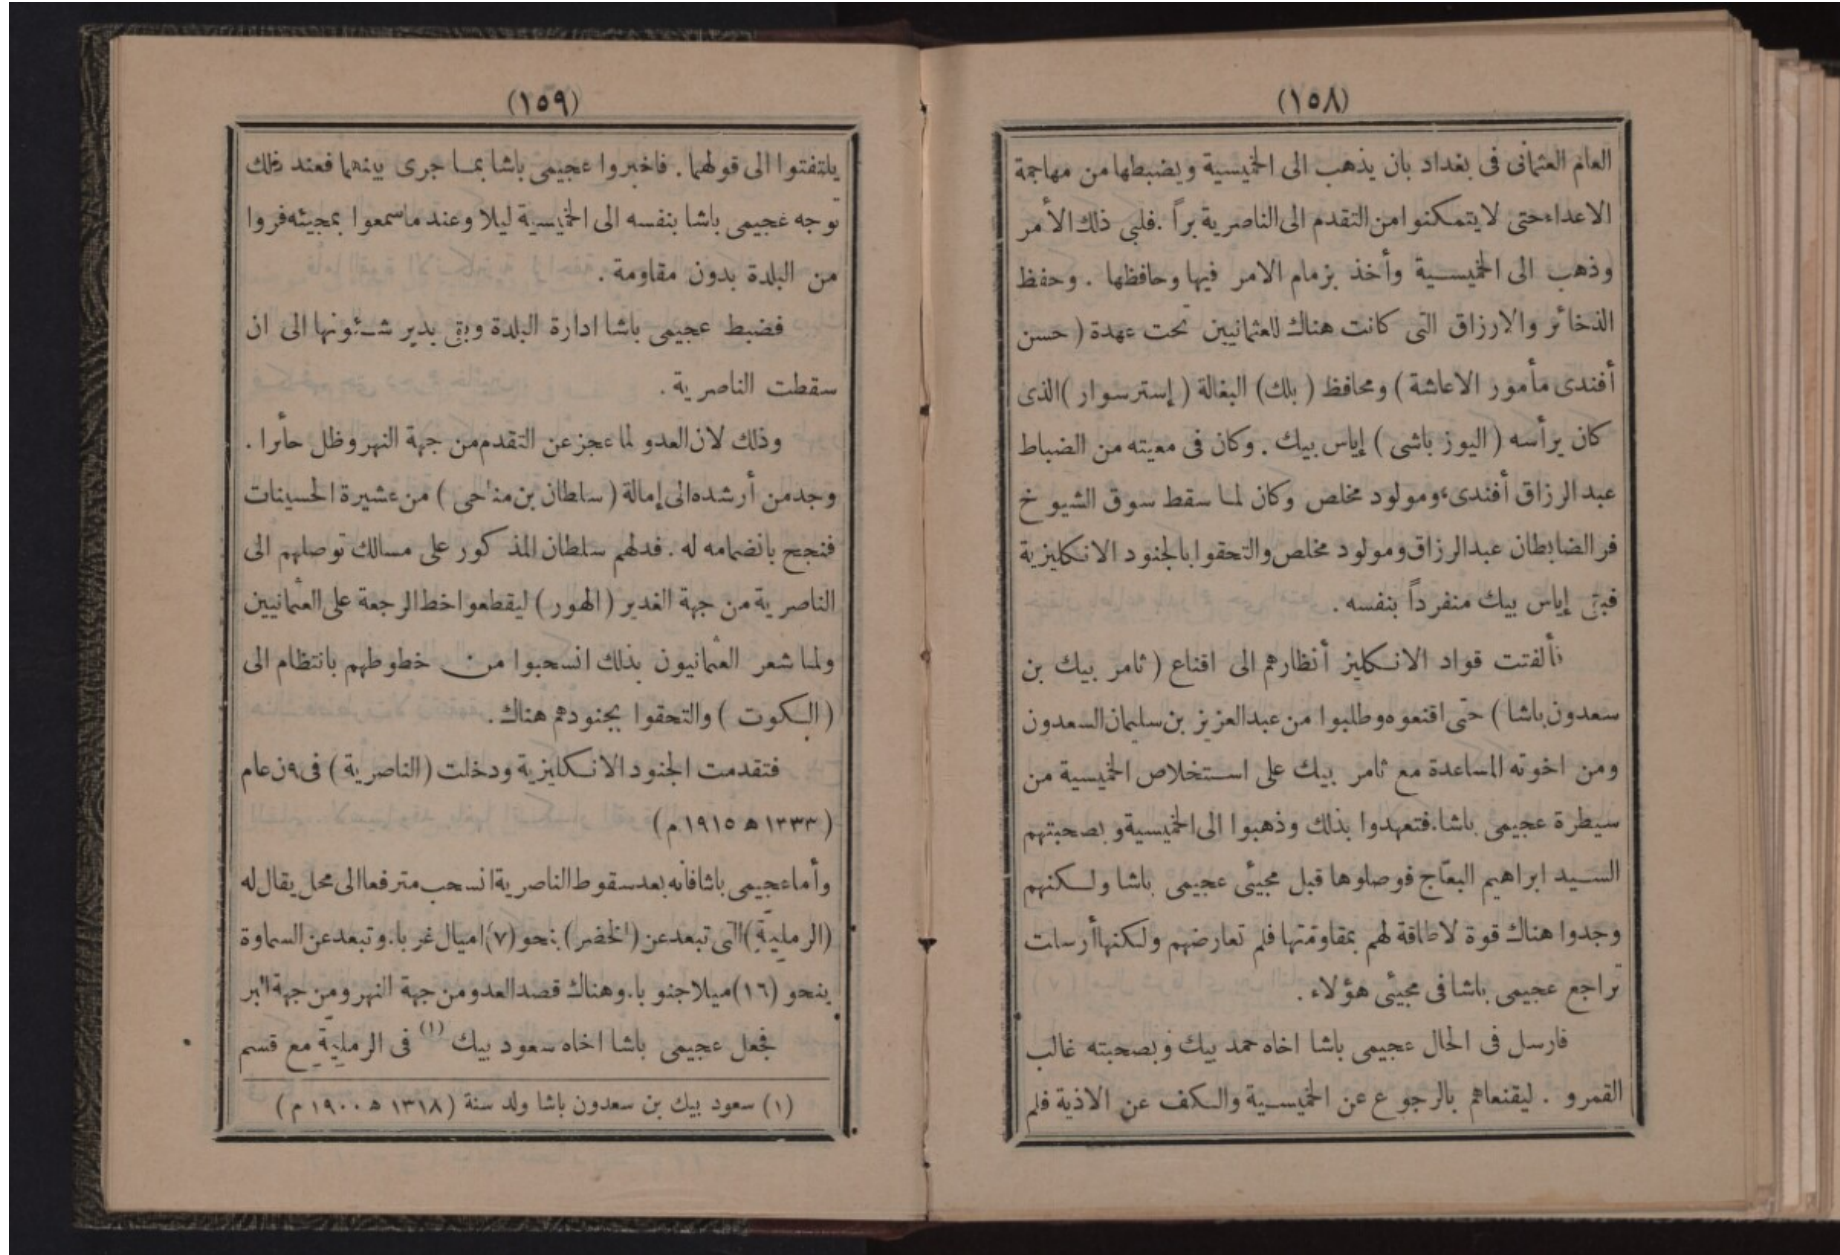 (١٥٨)
العام العثمانى فى بغداد بان يذهب الى الخميسية ويضبطها من مهاجمة
الاعداء حتى لا يتمكنوا من التقدم الى الناصرية براً . فلبى ذلك الأمر
وذهب الى الخميسية وأخذ بزمام الامر فيها وحافظها . وحفظ
الذخائر والارزاق التى كانت هناك للعثمانيين تحت عهدة ( حسن
أفندى مأمور الاعاشة ) ومحافظ ( بلك ) البغالة ( إسترسوار ) الذى
كان يرأسه ( اليوز باشى ) إياس بيك . وكان فى معيته من الضباط
عبد الرزاق أفندى، ومولود مخلص وكان لما سقط سوق الشيوخ
فر الضابطان عبد الرزاق ومولود مخلص والتحقوا بالجنود الانكليزية
فبقى إياس بيك منفرداً بنفسه .
فألفتت قواد الانكليز أنظارهم الى اقناع ( ثامر بيك بن
سعدون باشا ) حتى اقنعوه وطلبوا من عبد العزيز بن سليمان السعدون
ومن اخوته المساعدة مع ثامر بيك على استخلاص الخميسية من
سيطرة عجيمى باشا. فتعهدوا بذلك وذهبوا الى الخميسية وبصحبتهم
السيد ابراهيم البعاج فوصلوها قبل مجيئى عجيمى باشا ولكنهم
وجدوا هناك قوة لاطاقة لهم بمقاومتها فلم تعارضهم ولكنها أرسلت
تراجع عجيمى باشا فى مجيئى هؤلاء .
فارسل فى الحال عجيمى باشا اخاه حمد بيك وبصحبته غالب
القمرو . ليقنعاهم بالرجوع عن الخميسية والكف عن الاذية فلم
(١٥٩)
يلتفتوا الى قولهما . فاخبروا عجيمى باشا بما جرى بينهما فعند ذلك
توجه عجيمى باشا بنفسه الى الخميسية ليلا وعند ماسمعوا بمجيئه فروا
من البلدة بدون مقاومة .
فضبط عجيمى باشا ادارة البلدة وبقى يدير شئونها الى ان
سقطت الناصرية .
وذلك لان العدو لما عجز عن التقدم من جهة النهر وظل حائرا .
وجد من أرشده الى إمالة ( سلطان بن مناحى ) من عشيرة الحسينات
فنجح بانضمامه له . فدلهم سلطان المذكور على مسالك توصلهم الى
الناصرية من جهة الغدير ( الهور ) ليقطعوا خط الرجعة على العثمانيين
ولما شعر العثمانيون بذلك انسحبوا من خطوطهم بانتظام الى
( الكوت ) والتحقوا بجنودهم هناك .
فتقدمت الجنود الانكليزية ودخلت ( الناصرية ) فى ٩ ن عام
( ١٣٣٣ ه ١٩١٥ م )
وأما عجيمى باشا فانه بعد سقوط الناصرية انسحب مترفعا الى محل يقال له
(الرمليّة) التى تبعد عن (الخضر) بنحو (٧) اميال غربا. وتبعد عن السماوة
بنحو (١٦) ميلا جنوبا. وهناك قصد العدو من جهة النهر ومن جهة البر
فجعل عجيمى باشا اخاه سعود بيك (١) فى الرمليّة مع قسم
(١) سعود بيك بن سعدون باشا ولد سنة ( ١٣١٨ ه ١٩٠٠ م )